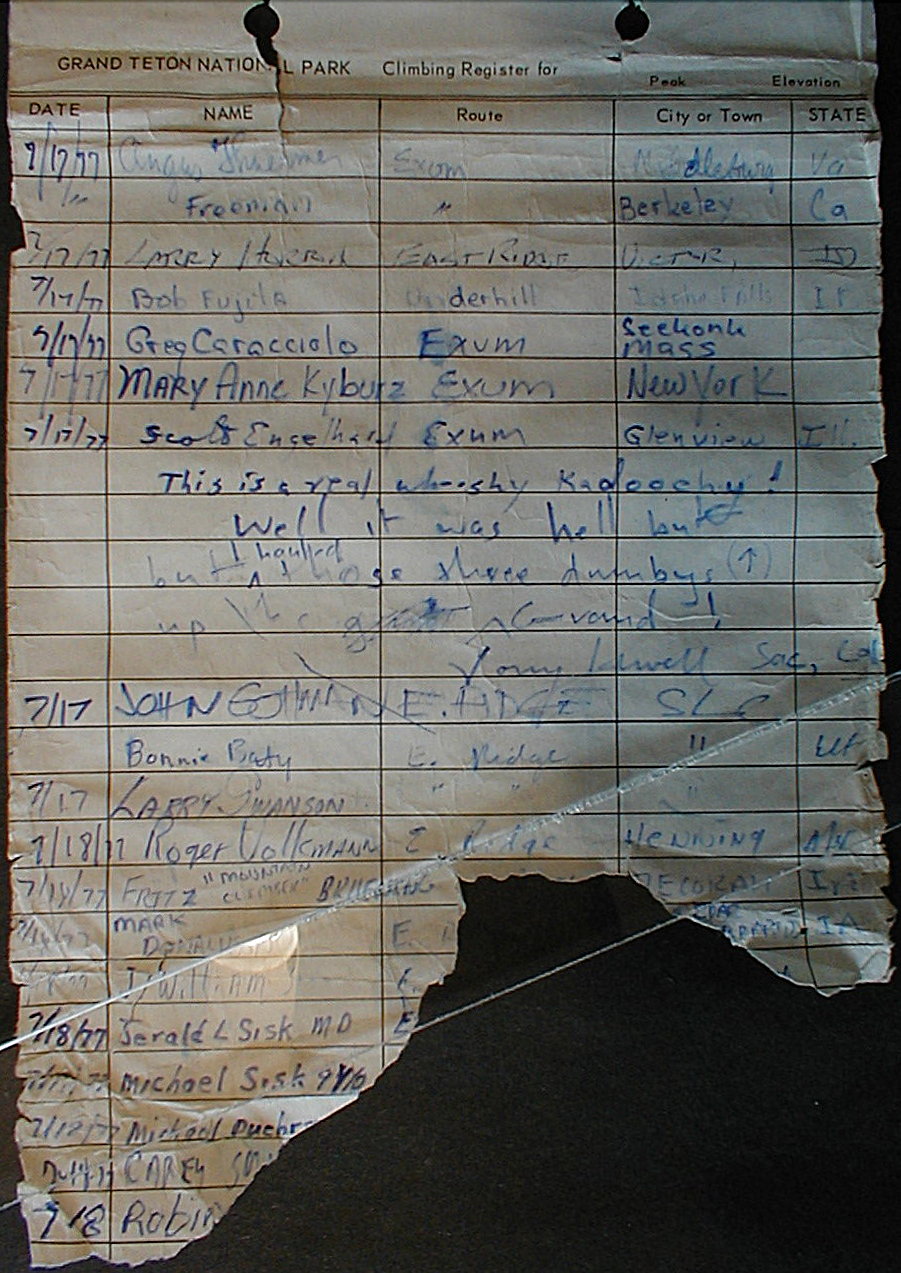 GRAND TETON NATION L PARK Climbing Register for
Peak Elevation
DATE NAME Route City or Town STATE
7/17/77 Angus Exum Middleburg Va
Freeman " Berkeley Ca
7/17/77 LARRY EAST RIDGE VICTOR, ID
7/17/77 Bob Fujita Underhill Idaho Falls Id
7/17/77 Greg Caracciolo Exum Seekonk Mass
7/17/77 MARY Anne Kyburz Exum New York
7/17/77 Scott Engelhard Exum Glenview Ill.
This is a real whooshy Kadoochy!
Well it was hell but
but I hauled those three dumbys (↑)
up the Grand!
Lowell Sac, Cal
7/17 JOHN E. RIDGE SLC
Bonnie Baty E. Ridge " Ut
7/17 LARRY SWANSON " " "
7/18/77 Roger VolkMANN E Ridge HENNING MN
7/18/77 FRITZ "MOUNTAIN CLIMBER" DECORAH
7/18/77 MARK DONALD E. RAPIDS IA
William E.
7/18/77 Jerald L Sisk MD E
7/18/77 Michael Sisk 9 Y/o
7/18/77 Michael
CAREY
7 18 Robin